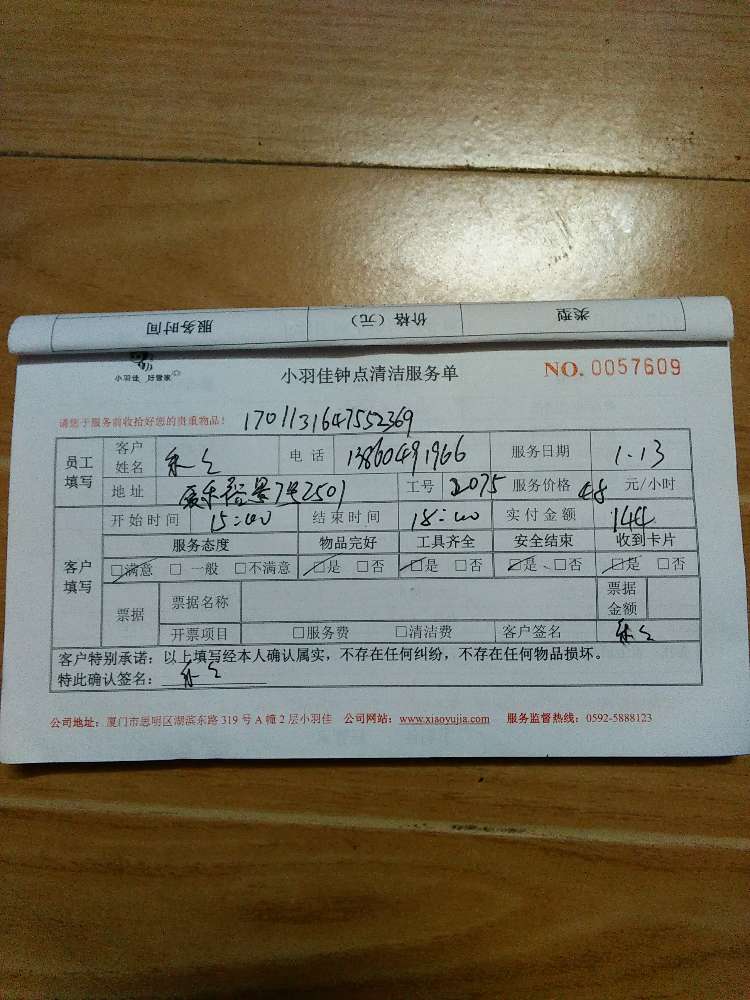 服务时间 价格（元） 类型
小羽佳 好管家 小羽佳钟点清洁服务单 NO. 0057609
请您于服务前收拾好您的贵重物品！ 1701131647552369
员工填写 客户姓名 电话 13860491966 服务日期 1.13
地址 7号2501 工号 2075 服务价格 48 元/小时
开始时间 15:00 结束时间 18:00 实付金额 144
客户填写 服务态度 物品完好 工具齐全 安全结束 收到卡片
□满意 □一般 □不满意 □是 □否 □是 □否 □是、□否 □是 □否
票据 票据名称 票据金额
开票项目 □服务费 □清洁费 客户签名
客户特别承诺：以上填写经本人确认属实，不存在任何纠纷，不存在任何物品损坏。
特此确认签名：
公司地址：厦门市思明区湖滨东路 319 号 A 幢 2 层小羽佳 公司网站：www.xiaoyujia.com 服务监督热线：0592-5888123